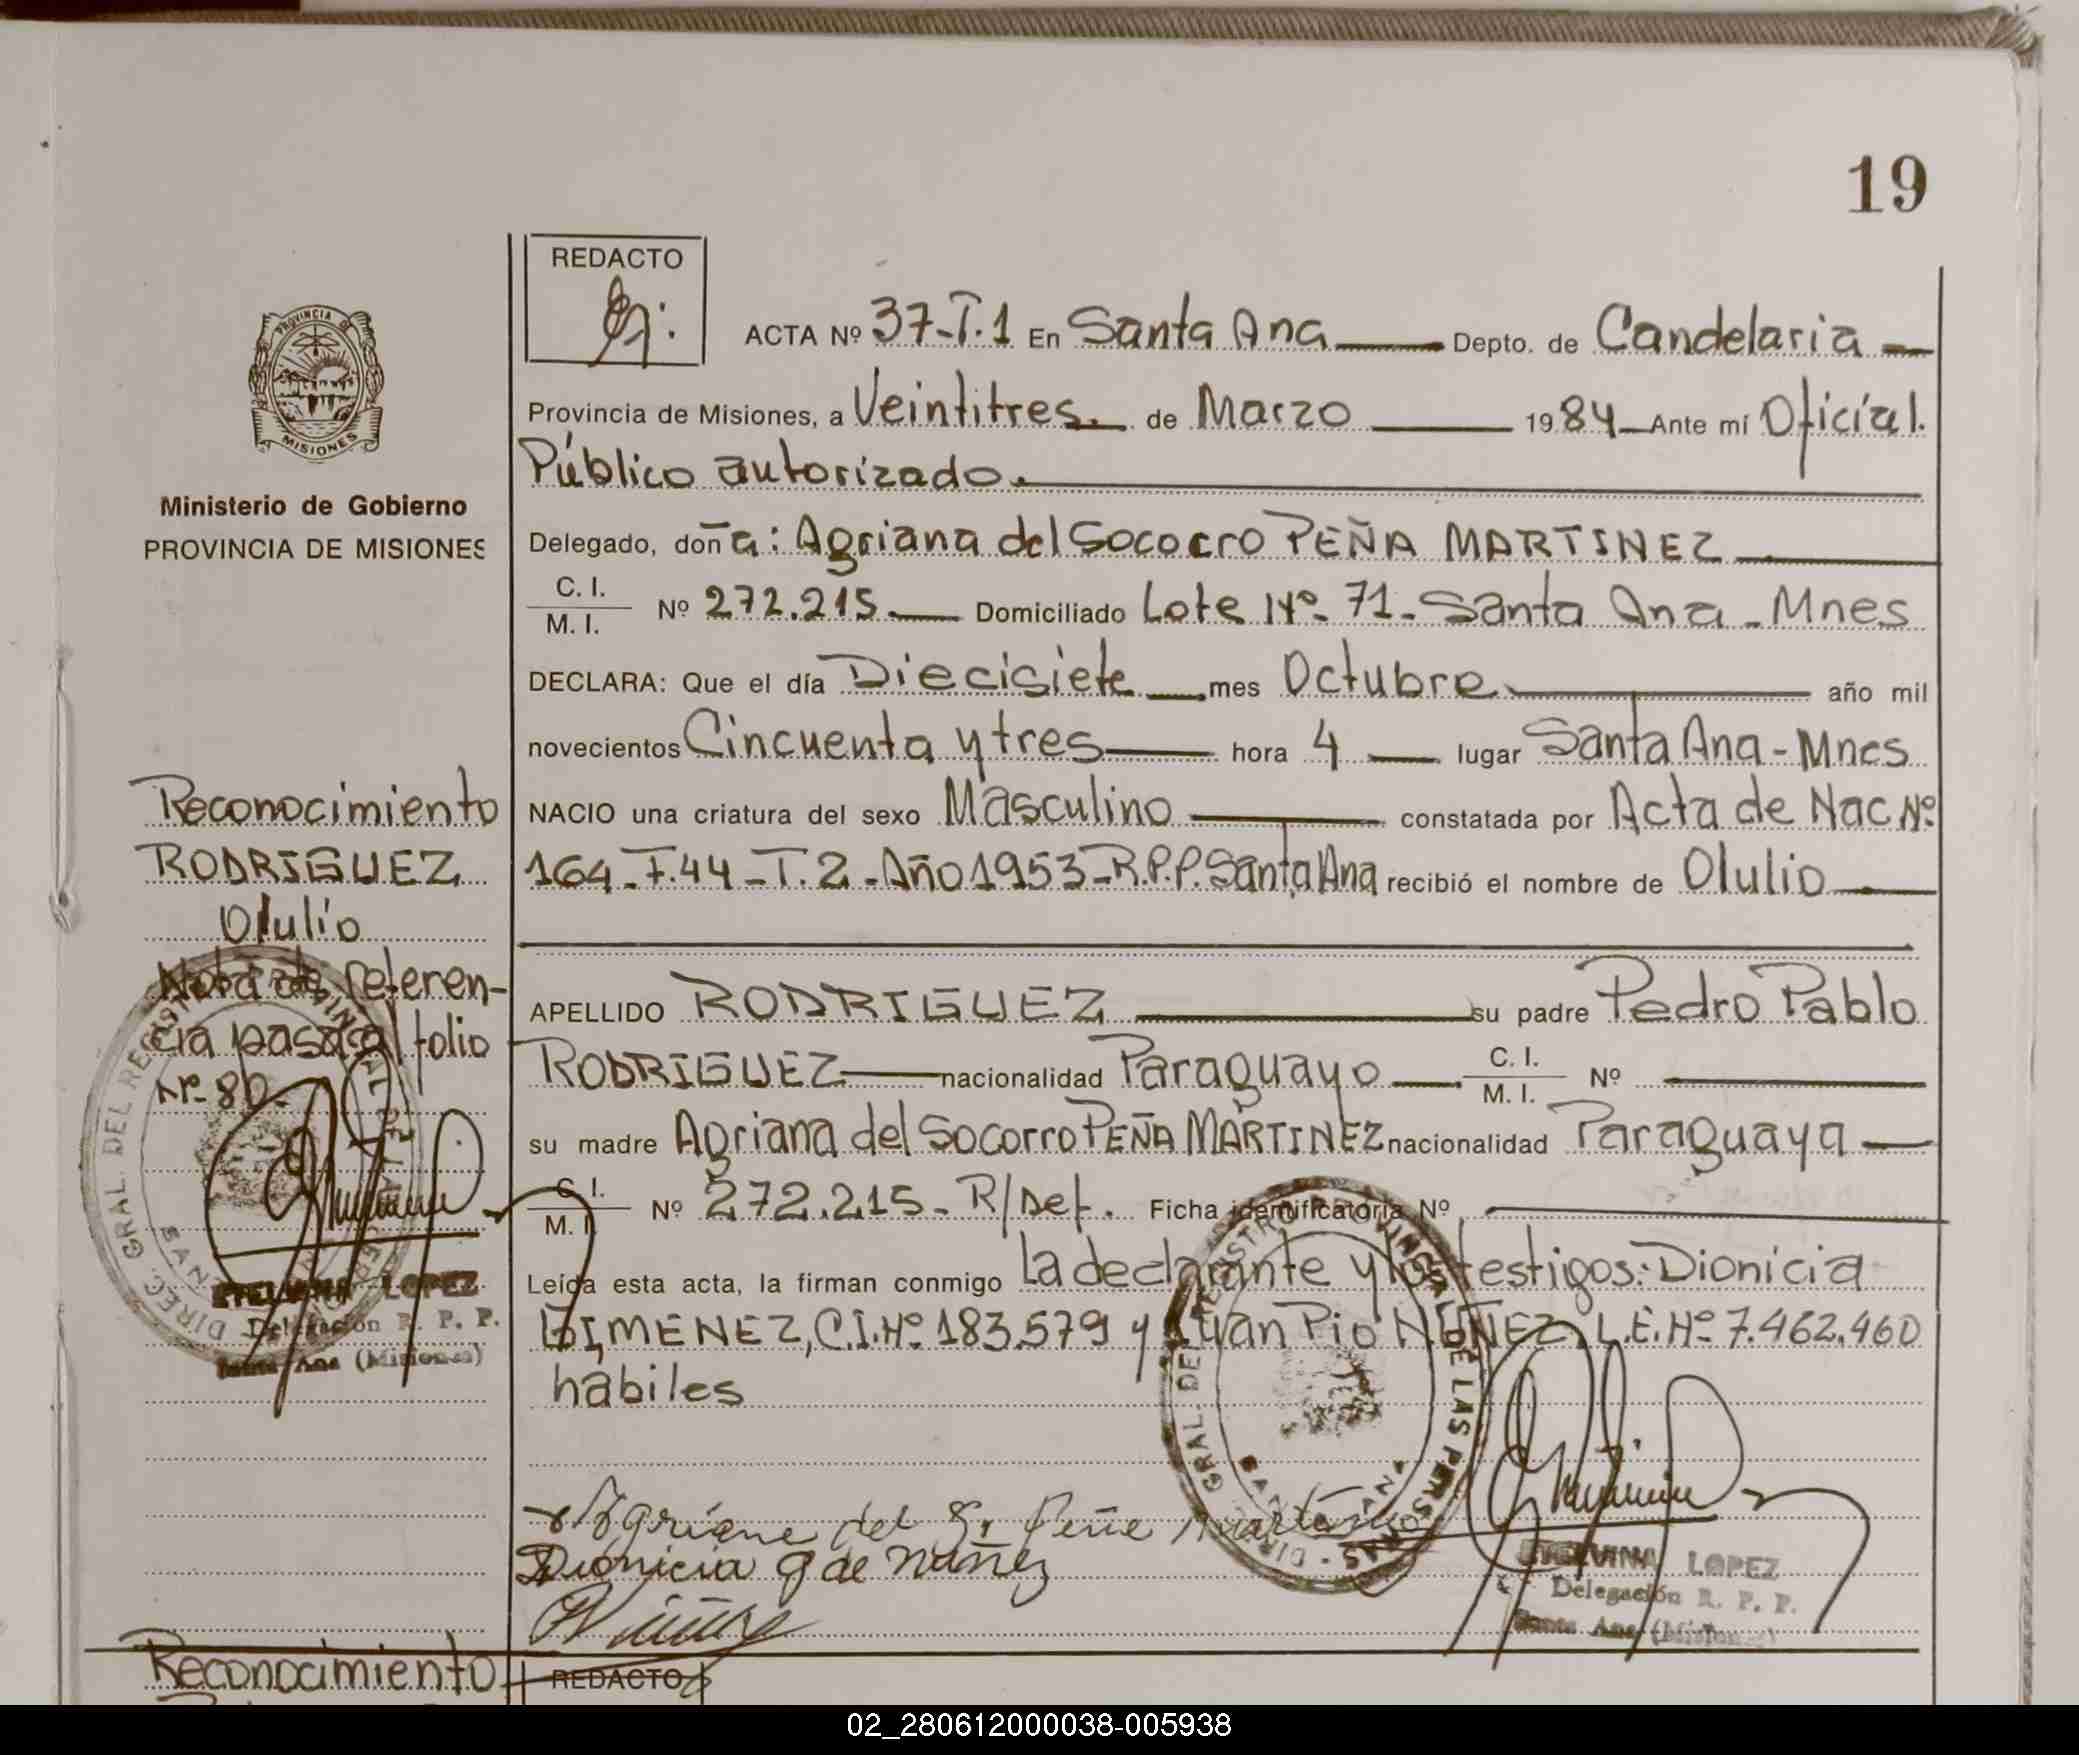 19
REDACTO
ACTA Nº 37-T.1 En Santa Ana Depto. de Candelaria
Provincia de Misiones, a Veintitres. de Marzo 1984 Ante mí Oficial.
Público autorizado.
Delegado, doña: Agriana del Sococrro PEÑA MARTINEZ
C. I.
M. I.
Nº 272.215. Domiciliado Lote Nº 71- Santa Ana - Mnes
DECLARA: Que el día Diecisiete mes Octubre año mil
novecientos Cincuenta y tres hora 4 lugar Santa Ana - Mnes
NACIO una criatura del sexo Masculino constatada por Acta de Nac Nº
164-F.44-T.2-Año 1953-R.P.P. Santa Ana recibió el nombre de Olulio
APELLIDO RODRIGUEZ su padre Pedro Pablo
RODRIGUEZ nacionalidad Paraguayo C. I.
M. I. Nº
su madre Agriana del Socorro PEÑA MARTINEZ nacionalidad Paraguaya
C. I.
M. I. Nº 272.215- R/Def. Ficha identificatoria Nº
Leída esta acta, la firman conmigo la declarante y los testigos: Dionicia
GIMENEZ, C.I.Nº 183.579 y Juan Pio NUÑEZ, L.E.Nº 7.462.460
habiles
Agriana del S. Peña Martinez
Dionicia G de Nuñez
ETELVINA LOPEZ
Delegación R. P. P.
Santa Ana (Misiones)
PROVINCIA DE
MISIONES
Ministerio de Gobierno
PROVINCIA DE MISIONES
Reconocimiento
RODRIGUEZ
Olulio
Nota de referen-
cia pasa al folio
Nº 80.
ETELVINA LOPEZ
Delegación R. P. P.
Santa Ana (Misiones)
Reconocimiento
REDACTO
02_280612000038-005938